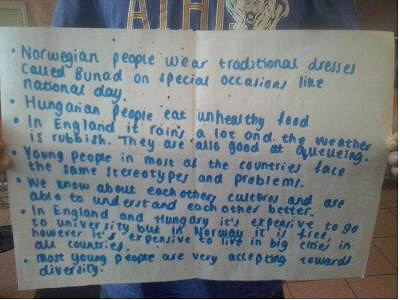 • Norwegian people wear traditional dresses
called Bunad on special occasions like
national day.
• Hungarian people eat unhealthy food
• In England it rains a lot and the weather
is rubbish. They are also good at queueing.
• Young people in most of the countries face
the same stereotypes and problems.
• We know about each others cultures and are
able to understand each other better.
• In England and Hungary it's expensive to go
to university but in Norway it is free,
however it's expensive to live in big cities in
all countries.
• Most young people are very accepting towards
diversity.